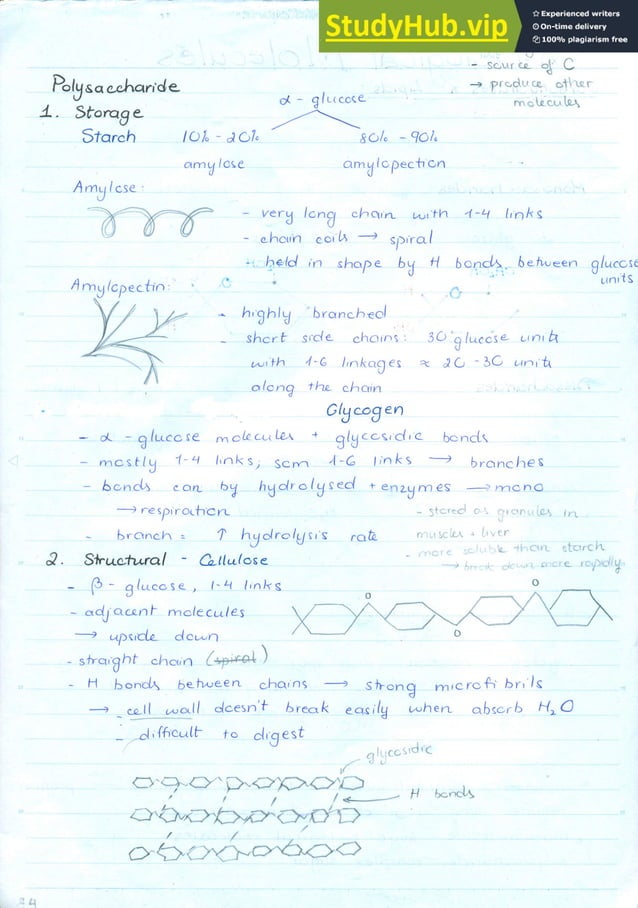 StudyHub.vip
Experienced writers
On-time delivery
100% plagiarism free
- source of C
→ produce other
molecules
Polysaccharide
1. Storage
α - glucose
Starch 10% - 20% 80% - 90%
amylose amylopectin
Amylose:
- very long chain with 1-4 links
- chain coils → spiral
- held in shape by H bonds between glucose
units
Amylopectin:
- highly branched
- short side chains: 30 glucose units
with 1-6 linkages ≈ 20 - 30 units
along the chain
Glycogen
- α - glucose molecules + glycosidic bonds
- mostly 1-4 links; som 1-6 links → branches
- bonds can by hydrolysed + enzymes → mono
→ respiration
- stored as granules in
muscles + liver
- branch = ↑ hydrolysis rate
- more soluble than starch
→ break down more rapidly
2. Structural - Cellulose
- β - glucose, 1-4 links
- adjacent molecules
→ upside down
- straight chain (spiral)
- H bonds between chains → strong microfibrils
→ cell wall doesn't break easily when absorb H₂O
- difficult to digest
O
O
O
glycosidic
H bonds